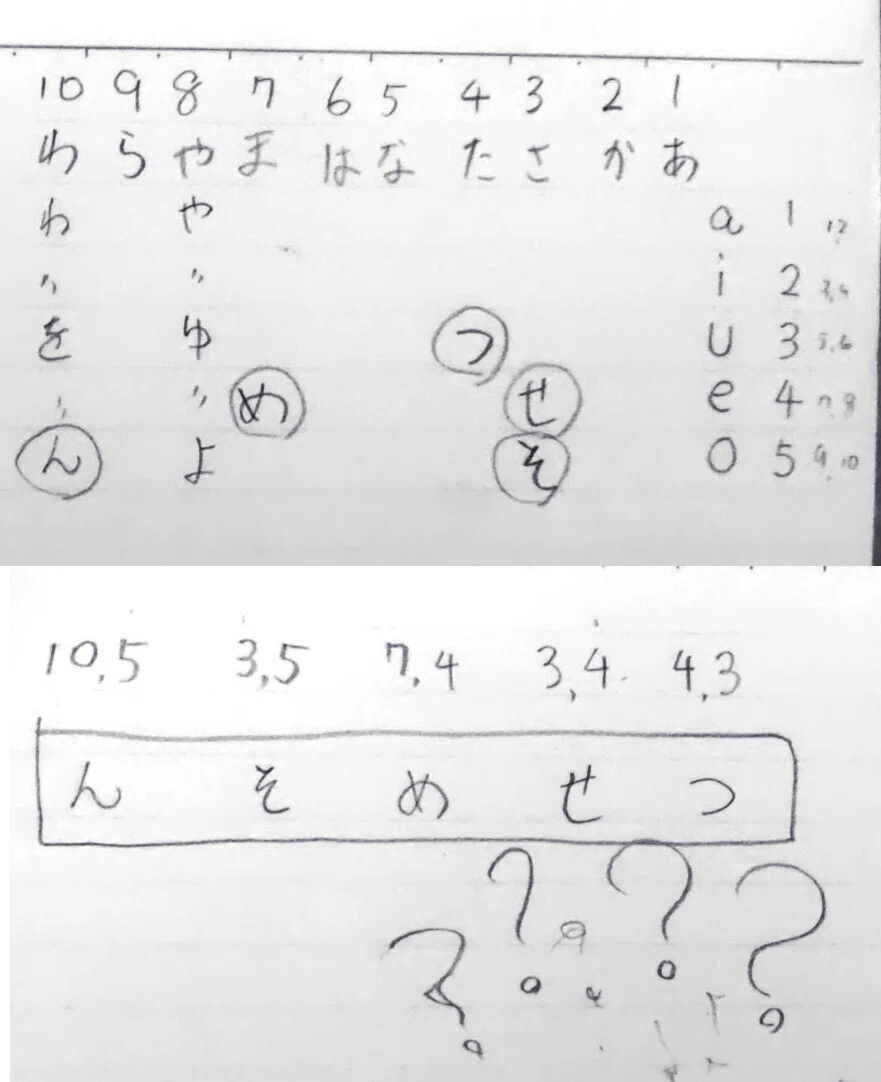 10 9 8 7 6 5 4 3 2 1
わ ら や ま は な た さ か あ
わ や a 1 1,2
〃 〃 i 2 3,4
を ゆ つ u 3 5,6
〃 〃 め せ e 4 7,8
ん よ そ o 5 9,10
10,5 3,5 7,4 3,4 4,3
ん そ め せ つ
? ? ? ?